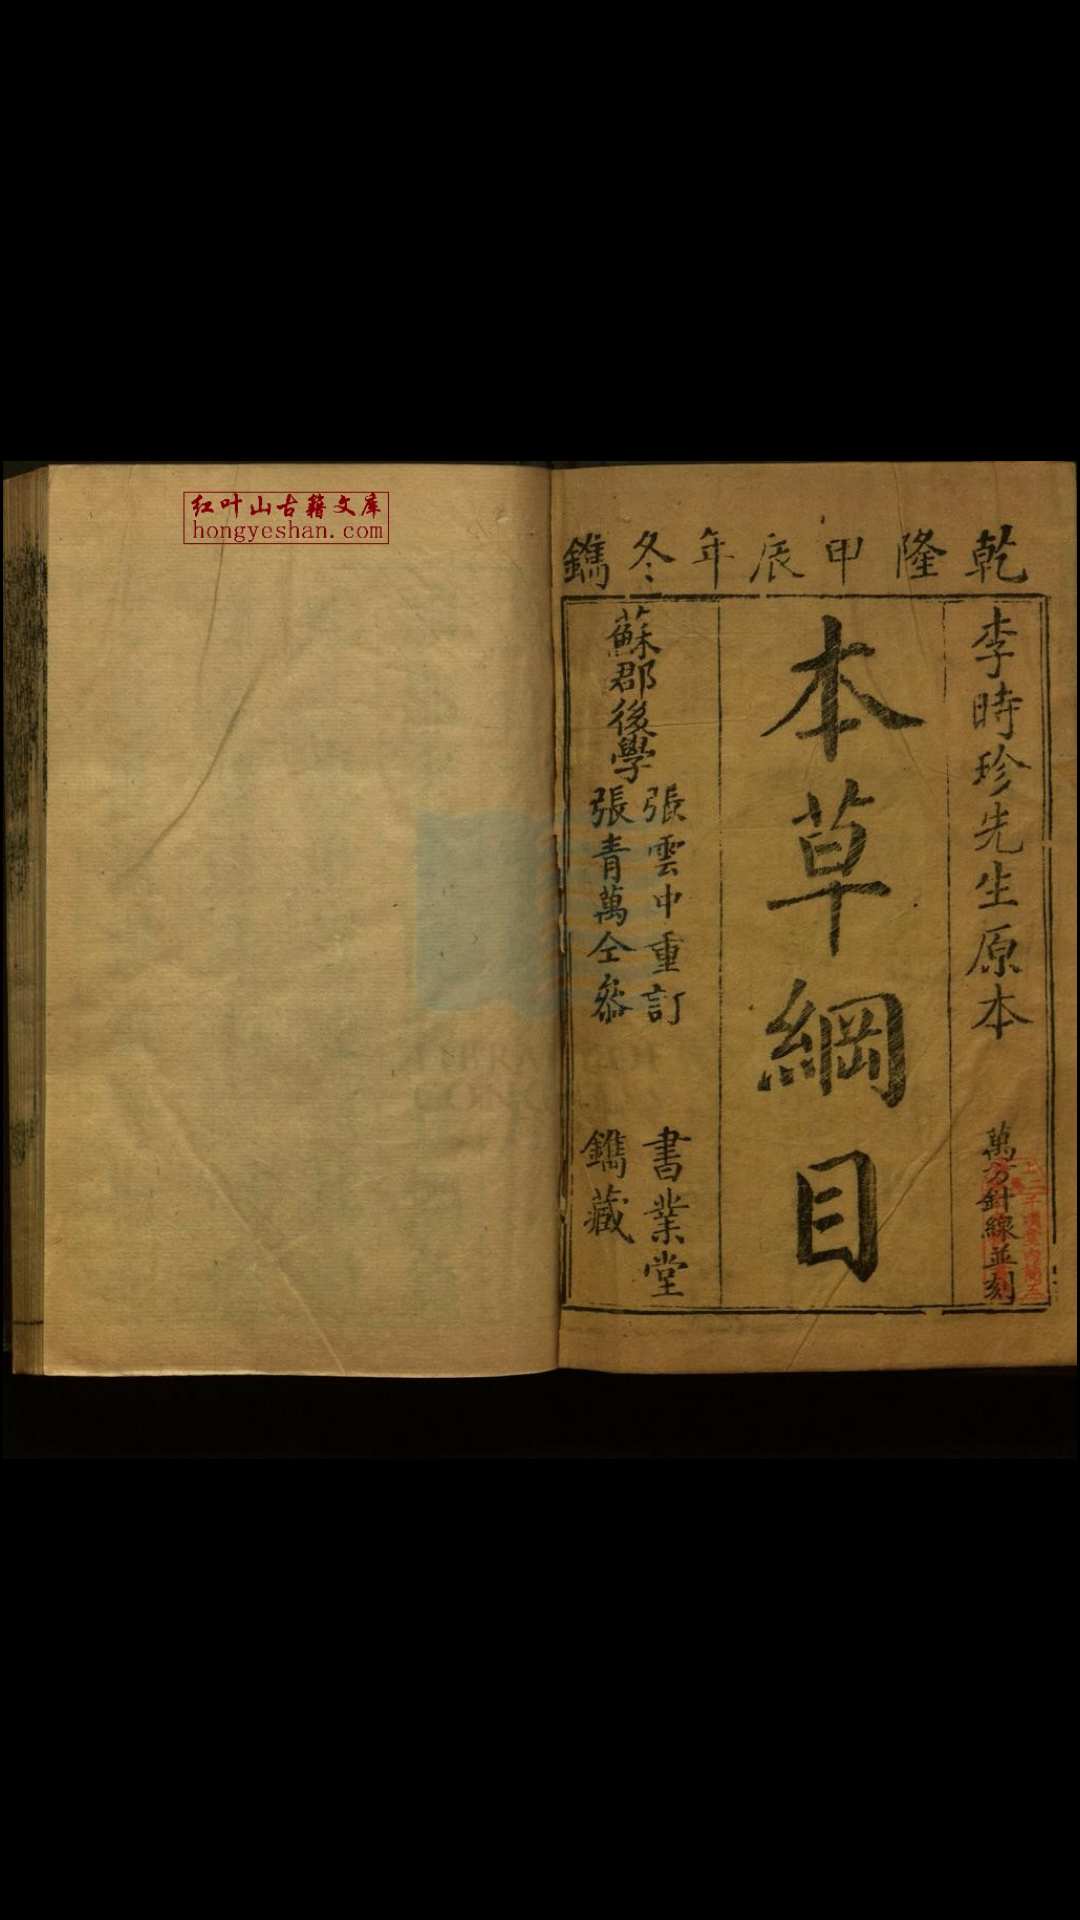 红叶山古籍文库
hongyeshan.com
乾隆甲辰年冬鐫
李時珍先生原本
萬方針線並刻
本草綱目
蘇郡後學
張雲中重訂
張青萬仝參
書業堂
鐫藏